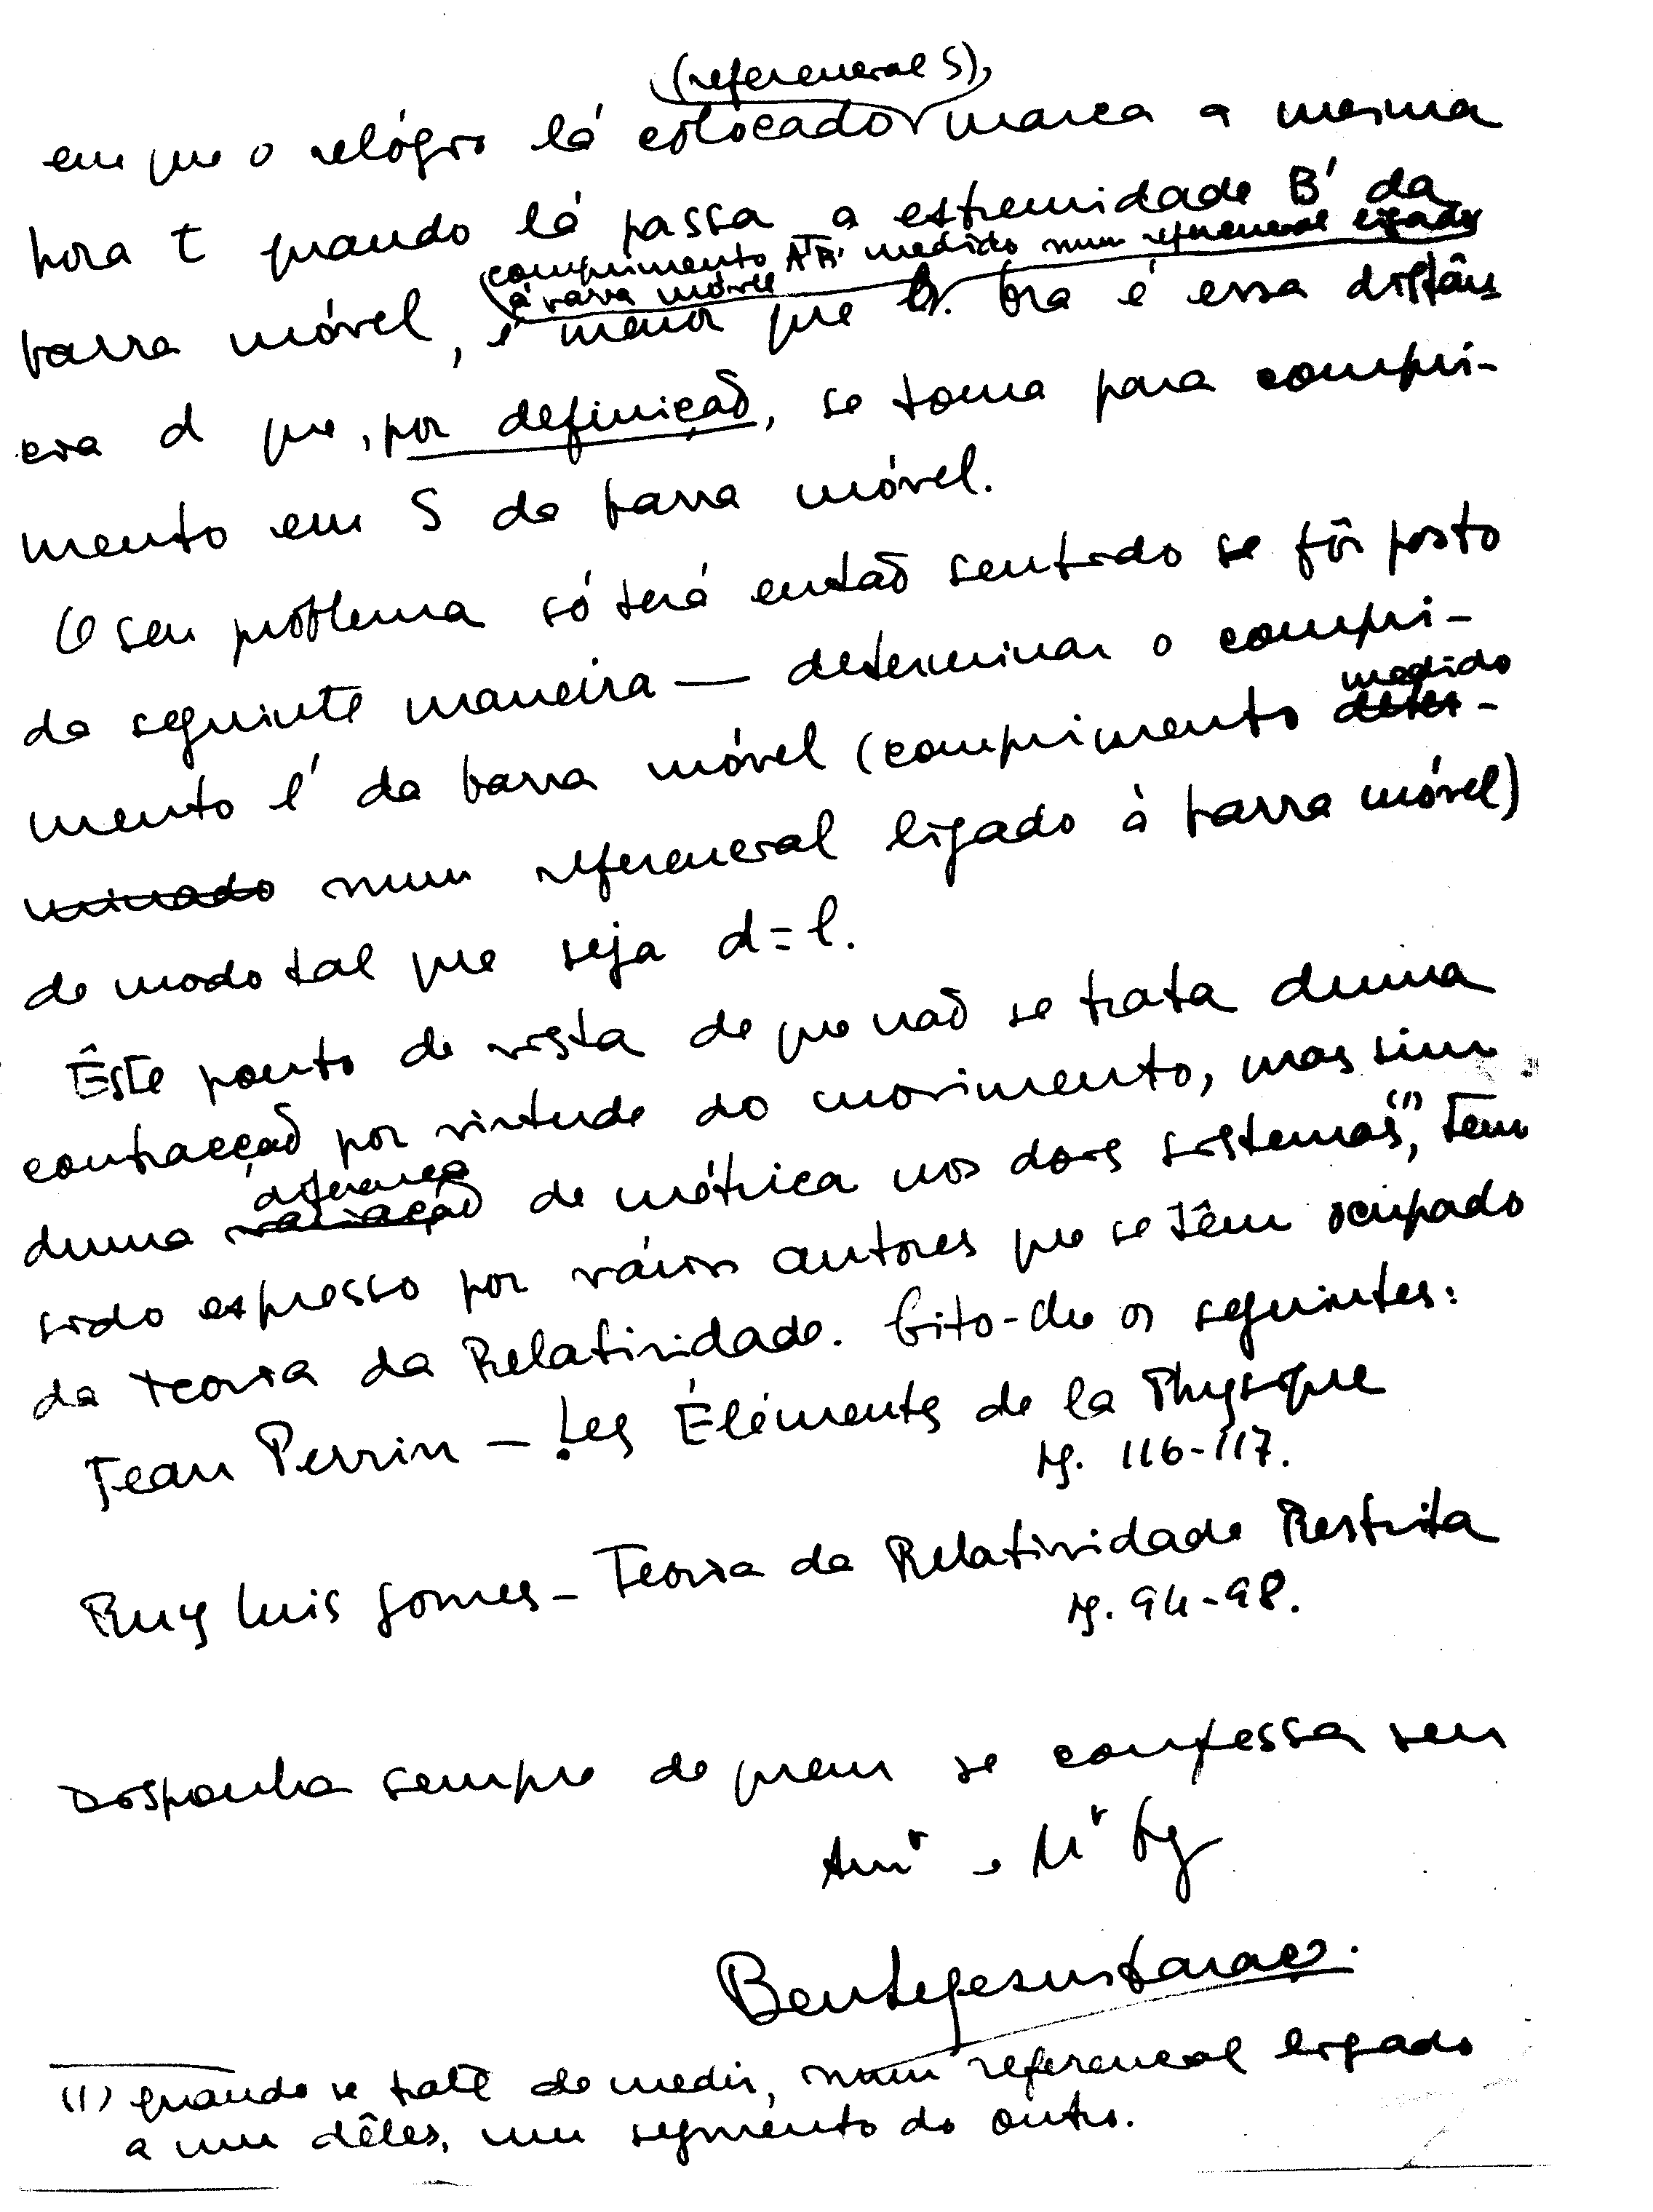 (referencial S),
em que o relógio lá colocado marca a mesma
hora t quando lá passa a extremidade B' da
(comprimento A'B' medido num referencial ligado
à barra móvel
barra móvel, é menor que l'. Ora é essa distân-
cia d que, por definição, se toma para compri-
mento em S da barra móvel.
O seu problema só terá então sentido se fôr posto
da seguinte maneira — determinar o compri-
medido
mento l' da barra móvel (comprimento deter-
minado num referencial ligado à barra móvel)
de modo tal que seja d = l.
Êste ponto de vista de que não se trata duma
contracção por virtude do movimento, mas sim
diferença
duma variação de métrica nos dois sistemas(1), tem
sido expresso por vários autores que se têm ocupado
da Teoria da Relatividade. Cito-lhe os seguintes:
Jean Perrin — Les Éléments de la Physique
pg. 116-117.
Ruy Luis Gomes — Teoria da Relatividade Restrita
pg. 94-98.
Disponha sempre de quem se confessa seu
Amº e Mº
Bento de Jesus Caraça.
(1) quando se trate de medir, num referencial ligado
a um dêles, um segmento do outro.